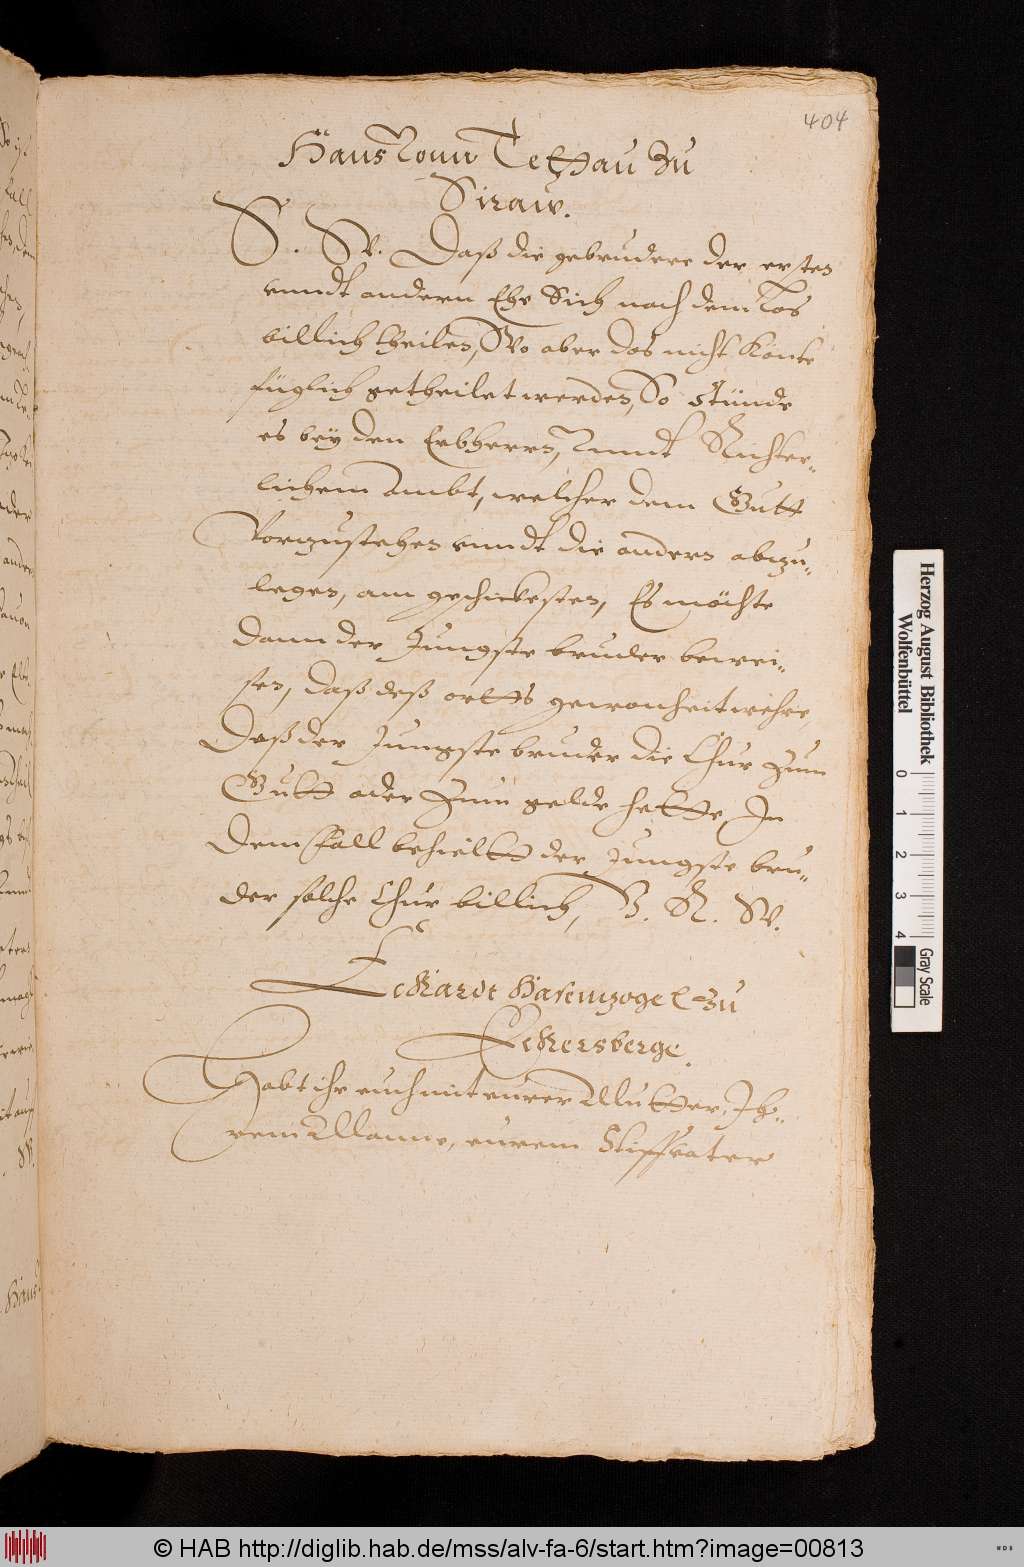 404
Hans Vonn Tettau zu
Siraw.
S. W. Daß die gebrudere der ersten
vnndt andern Ehe Sich nach dem Los
billich theilen, Wo aber das nicht Könte
füglich getheilet werden, So stünde
es bey den Erbherrn, Vnndt Richter-
lichem Ambt, welcher dem Gutt
Vorzustehen vnndt die andern abzu-
legen, am geschicktesten, Es möchte
dann der Jungste bruder bewei-
sen, daß deß ortts gewonheit wehre,
Daß der Jungste bruder die Chur zum
Gutt oder zum gelde hette, In
dem Fall behieltt der Jungste bru-
der solche Chur billich, V. R. W.
Eckardt Hasenvogel zu
Eckersberge.
Habt ihr euch mit eurer Mutter, Ih-
rem Manne, eurem Stiffvater
Hans
Herzog August Bibliothek
Wolfenbüttel
0 1 2 3 4
Gray Scale
© HAB http://diglib.hab.de/mss/alv-fa-6/start.htm?image=00813